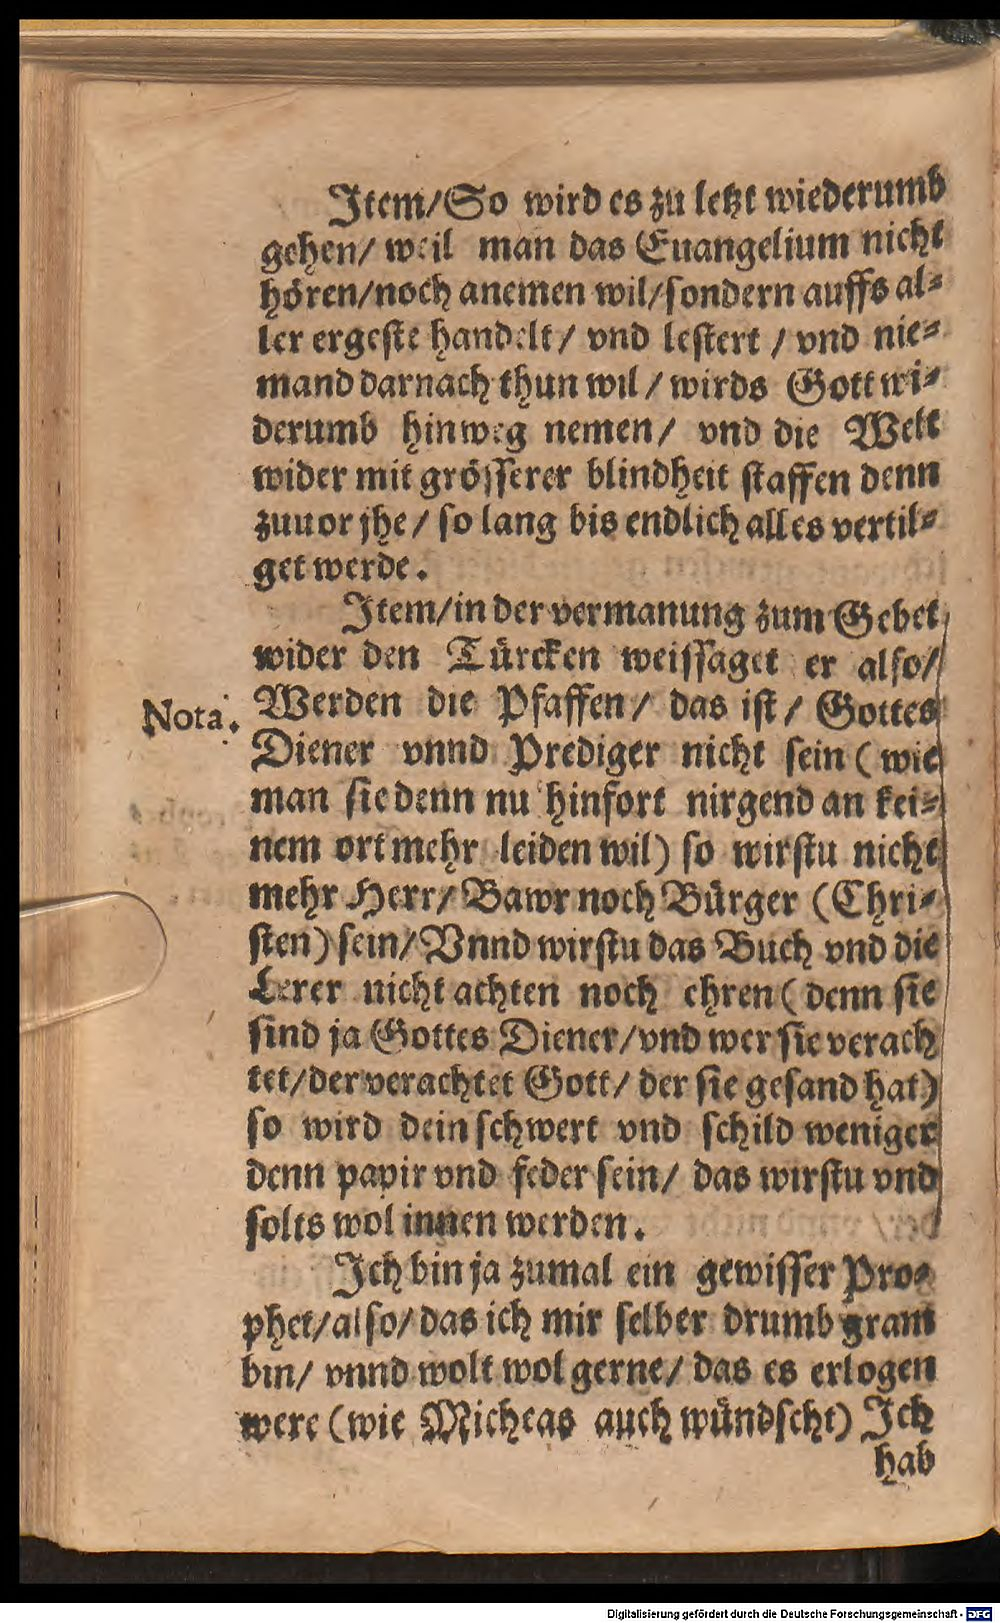 Item/So wird es zu letzt wiederumb
gehen/ weil man das Euangelium nicht
hören/noch anemen wil/sondern auffs al⸗
ler ergeste handelt/ vnd lestert / vnd nie⸗
mand darnach thun wil / wirds Gott wi⸗
derumb hinweg nemen/ vnd die Welt
wider mit grösserer blindheit staffen denn
zuuor jhe / so lang bis endlich alles vertil⸗
get werde.
Item/in der vermanung zum Gebet
wider den Türcken weissaget er also/
Nota. Werden die Pfaffen/ das ist/ Gottes
Diener vnnd Prediger nicht sein ( wie
man sie denn nu hinfort nirgend an kei⸗
nem ort mehr leiden wil) so wirstu nicht
mehr Herr/ Bawr noch Bürger (Chri⸗
sten) sein/ Vnnd wirstu das Buch vnd die
Lerer nicht achten noch ehren ( denn sie
sind ja Gottes Diener/vnd wer sie verach
tet/der verachtet Gott/ der sie gesand hat)
so wird dein schwert vnd schild weniger
denn papir vnd feder sein/ das wirstu vnd
solts wol innen werden.
Ich bin ja zumal ein gewisser Pro⸗
phet/also/ das ich mir selber drumb gram
bin/ vnnd wolt wol gerne/ das es erlogen
were (wie Micheas auch wündscht) Ich
hab
Digitalisierung gefördert durch die Deutsche Forschungsgemeinschaft - DFG